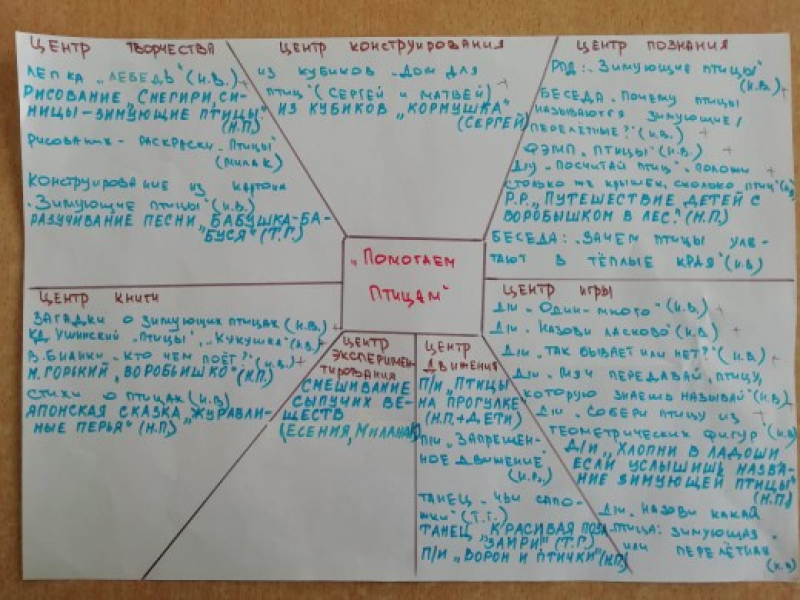 ЦЕНТР ТВОРЧЕСТВА
ЛЕПКА „ЛЕБЕДЬ" (И.В.) +
РИСОВАНИЕ „СНЕГИРИ, СИ-
НИЦЫ-ЗИМУЮЩИЕ ПТИЦЫ"
(Н.П)
РИСОВАНИЕ-РАСКРАСКИ „ПТИЦЫ"
КОНСТРУИРОВАНИЕ ИЗ КАРТОНА
„ЗИМУЮЩИЕ ПТИЦЫ" (И.В)
РАЗУЧИВАНИЕ ПЕСНИ „БАБУШКА-БА-
БУСЯ" (Т.Г.)
ЦЕНТР КОНСТРУИРОВАНИЯ
ИЗ КУБИКОВ „ДОМ ДЛЯ
ПТИЦ" (СЕРГЕЙ И МАТВЕЙ) +
ИЗ КУБИКОВ „КОРМУШКА"
(СЕРГЕЙ)
ЦЕНТР ПОЗНАНИЯ
„ЗИМУЮЩИЕ ПТИЦЫ"
(И.В.) +
БЕСЕДА „ПОЧЕМУ ПТИЦЫ
НАЗЫВАЮТСЯ ЗИМУЮЩИЕ/
ПЕРЕЛЕТНЫЕ?" (И.В.) +
ФЭМП „ПТИЦЫ" (И.В.) +
Д/У „ПОСЧИТАЙ ПТИЦ" „ПОЛОЖИ
СТОЛЬКО ЖЕ КРЫШЕК, СКОЛЬКО ПТИЦ"
Р.Р. „ПУТЕШЕСТВИЕ ДЕТЕЙ С
ВОРОБЫШКОМ В ЛЕС." (Н.П.)
БЕСЕДА: „ЗАЧЕМ ПТИЦЫ УЛЕ-
ТАЮТ В ТЁПЛЫЕ КРАЯ" (И.В)
„ПОМОГАЕМ
ПТИЦАМ"
ЦЕНТР КНИГИ
ЗАГАДКИ О ЗИМУЮЩИХ ПТИЦАХ (И.В.) +
КД УШИНСКИЙ „ПТИЦЫ", „КУКУШКА" (И.В.) +
В. БИАНКИ „КТО ЧЕМ ПОЁТ?" (И.В.) +
М. ГОРЬКИЙ „ВОРОБЬИШКО" (Н.П.)
СТИХИ О ПТИЦАХ (И.В)
ЯПОНСКАЯ СКАЗКА „ЖУРАВЛИ-
НЫЕ ПЕРЬЯ" (Н.П)
ЦЕНТР
ЭКСПЕРИМЕН-
ТИРОВАНИЯ
СМЕШИВАНИЕ
СЫПУЧИХ ВЕ-
ЩЕСТВ
(ЕСЕНИЯ, МИЛАНА
ЦЕНТР
ДВИЖЕНИЯ
П/И „ПТИЦЫ
НА ПРОГУЛКЕ"
(Н.П.+ДЕТИ)
П/И „ЗАПРЕЩЕН-
НОЕ ДВИЖЕНИЕ"
ТАНЕЦ „ЧЬИ САПО-
ЖКИ" (Т.Г.)
ТАНЕЦ „КРАСИВАЯ ПОЗА
ЗАМРИ" (Т.Г)
П/И „ВОРОН И ПТИЧКИ" (Н.П)
ЦЕНТР ИГРЫ
Д/И „ОДИН-МНОГО" (И.В.) +
Д/И „НАЗОВИ ЛАСКОВО" (И.В) +
Д/И „ТАК БЫВАЕТ ИЛИ НЕТ?" (И.В) +
Д/И „МЯЧ ПЕРЕДАВАЙ, ПТИЦУ,
КОТОРУЮ ЗНАЕШЬ НАЗЫВАЙ" (И.В) +
Д/И „СОБЕРИ ПТИЦУ ИЗ +
ГЕОМЕТРИЧЕСКИХ ФИГУР" (И.В)
Д/И „ХЛОПНИ В ЛАДОШИ
ЕСЛИ УСЛЫШИШЬ НАЗВА-
НИЕ ЗИМУЮЩЕЙ ПТИЦЫ"
(Н.П)
Д/И „НАЗОВИ КАКАЯ
ПТИЦА: ЗИМУЮЩАЯ
ИЛИ ПЕРЕЛЁТНАЯ
(И.В)